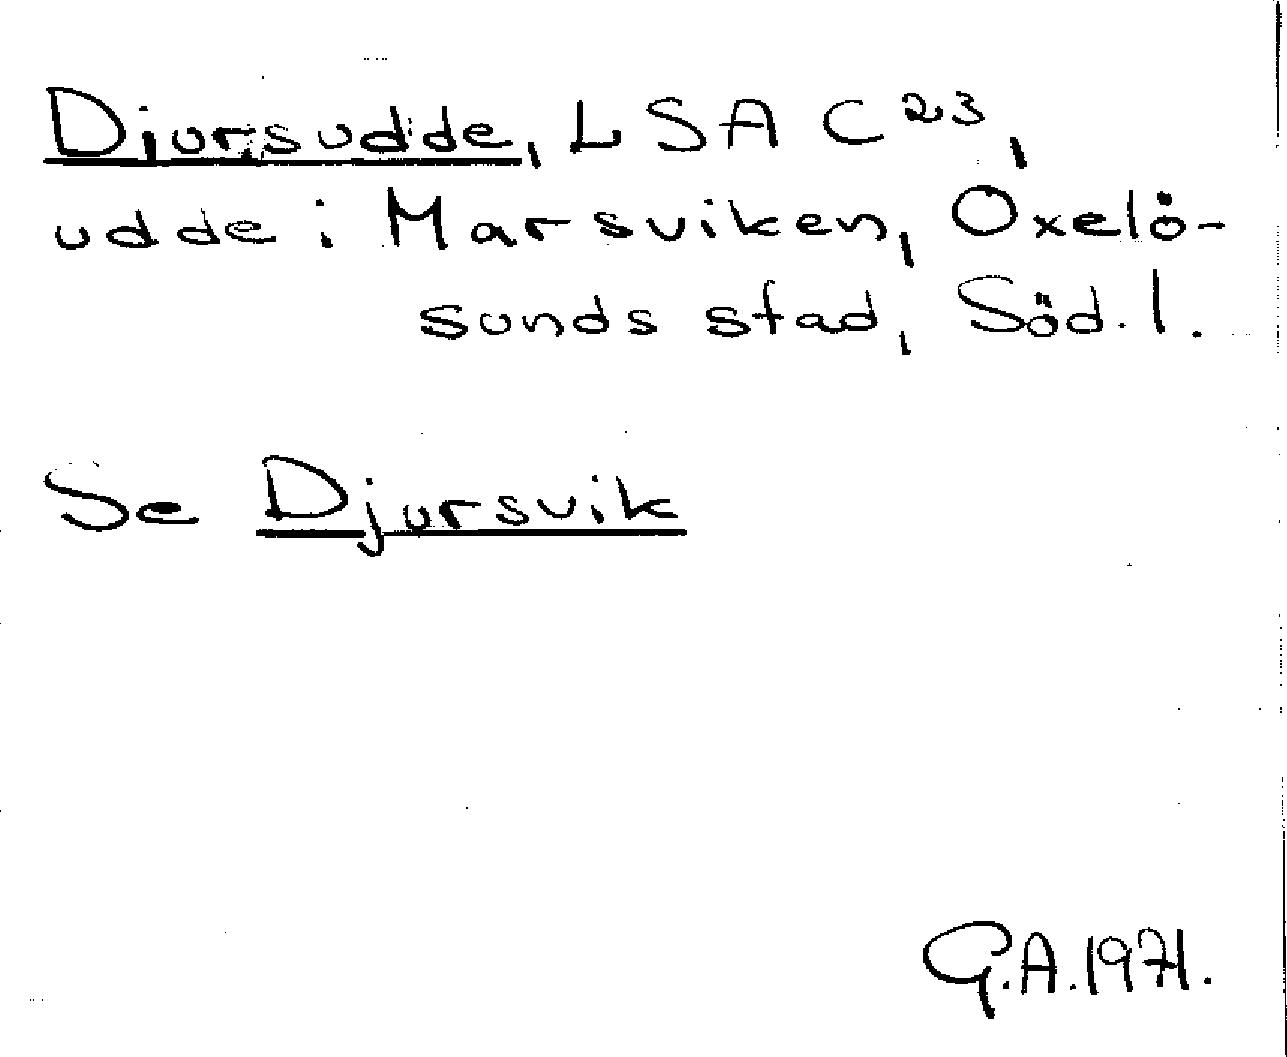 Djursudde, LSA C23,
udde i Marsviken, Oxelö-
sunds stad, Söd. l.
Se Djursvik
G.A. 1971.